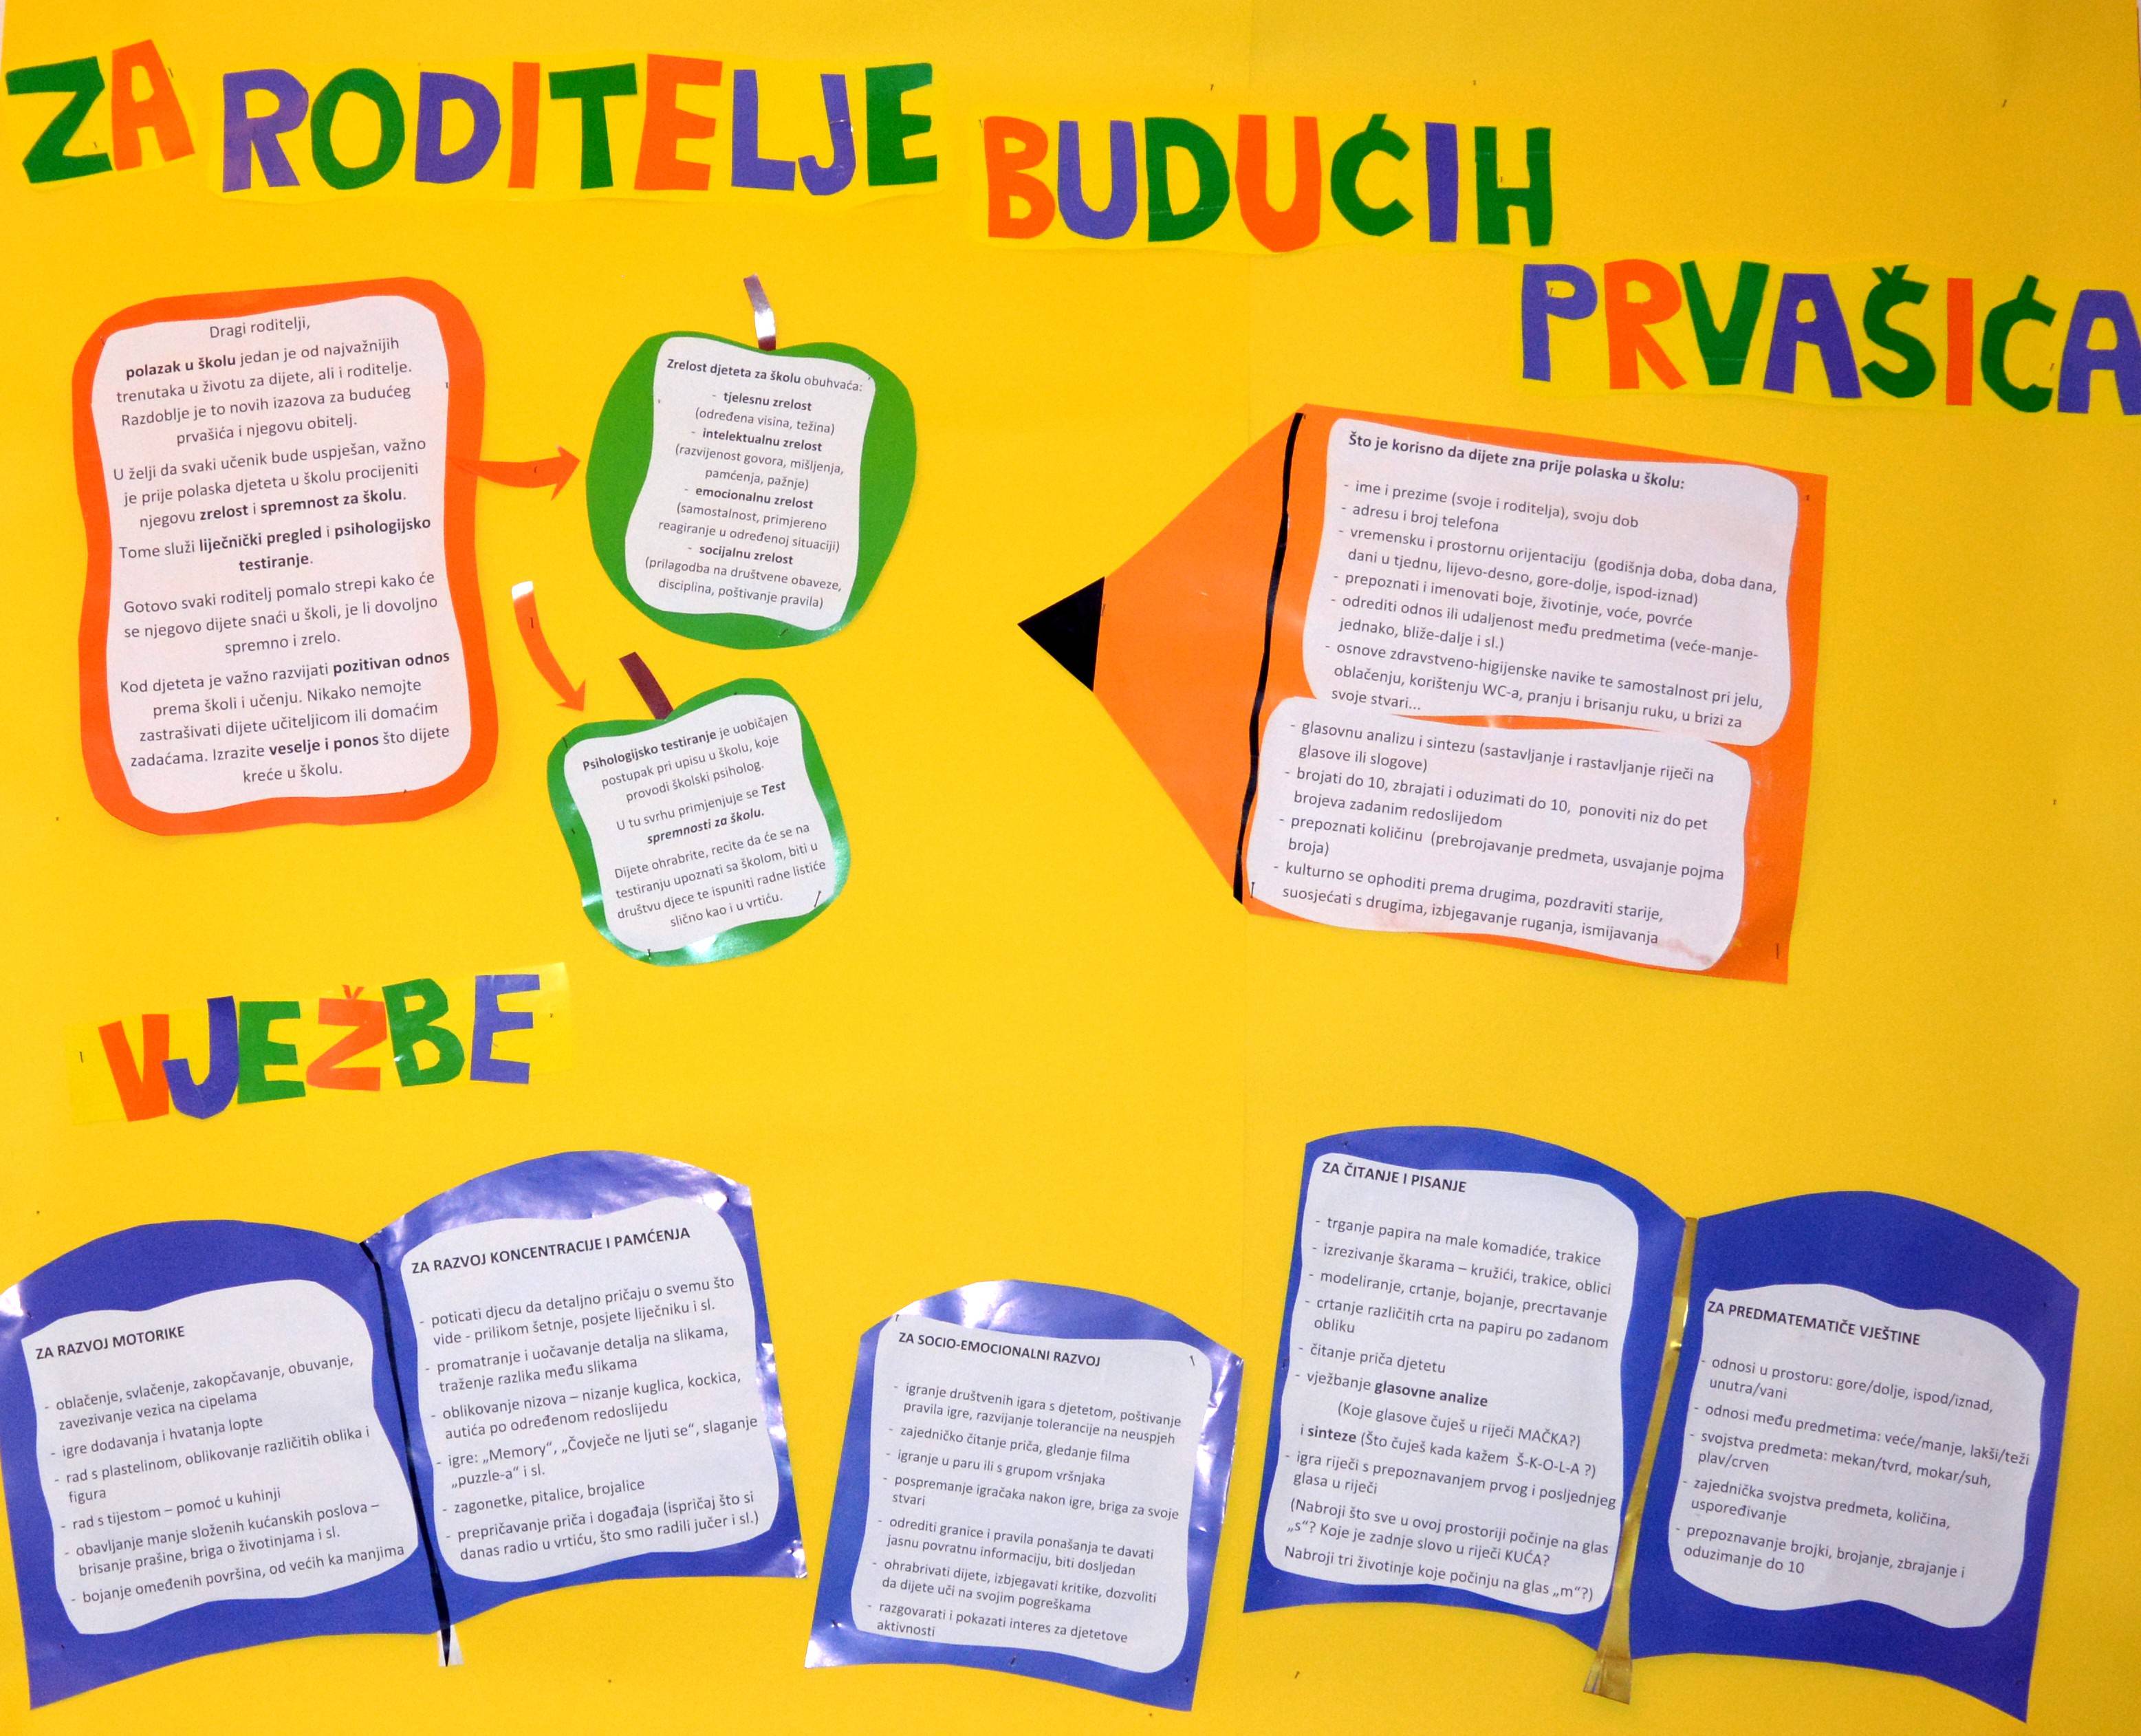 ZA RODITELJE BUDUĆIH
PRVAŠIĆA
Dragi roditelji,
polazak u školu jedan je od najvažnijih
trenutaka u životu za dijete, ali i roditelje.
Razdoblje je to novih izazova za budućeg
prvašića i njegovu obitelj.
U želji da svaki učenik bude uspješan, važno
je prije polaska djeteta u školu procijeniti
njegovu zrelost i spremnost za školu.
Tome služi liječnički pregled i psihologijsko
testiranje.
Gotovo svaki roditelj pomalo strepi kako će
se njegovo dijete snaći u školi, je li dovoljno
spremno i zrelo.
Kod djeteta je važno razvijati pozitivan odnos
prema školi i učenju. Nikako nemojte
zastrašivati dijete učiteljicom ili domaćim
zadaćama. Izrazite veselje i ponos što dijete
kreće u školu.
Zrelost djeteta za školu obuhvaća:
- tjelesnu zrelost
(određena visina, težina)
- intelektualnu zrelost
(razvijenost govora, mišljenja,
pamćenja, pažnje)
- emocionalnu zrelost
(samostalnost, primjereno
reagiranje u određenoj situaciji)
- socijalnu zrelost
(prilagodba na društvene obaveze,
disciplina, poštivanje pravila)
Psihologijsko testiranje je uobičajen
postupak pri upisu u školu, koje
provodi školski psiholog.
U tu svrhu primjenjuje se Test
spremnosti za školu.
Dijete ohrabrite, recite da će se na
testiranju upoznati sa školom, biti u
društvu djece te ispuniti radne listiće
slično kao i u vrtiću.
Što je korisno da dijete zna prije polaska u školu:
- ime i prezime (svoje i roditelja), svoju dob
- adresu i broj telefona
- vremensku i prostornu orijentaciju (godišnja doba, doba dana,
dani u tjednu, lijevo-desno, gore-dolje, ispod-iznad)
- prepoznati i imenovati boje, životinje, voće, povrće
- odrediti odnos ili udaljenost među predmetima (veće-manje-
jednako, bliže-dalje i sl.)
- osnove zdravstveno-higijenske navike te samostalnost pri jelu,
oblačenju, korištenju WC-a, pranju i brisanju ruku, u brizi za
svoje stvari...
- glasovnu analizu i sintezu (sastavljanje i rastavljanje riječi na
glasove ili slogove)
- brojati do 10, zbrajati i oduzimati do 10, ponoviti niz do pet
brojeva zadanim redoslijedom
- prepoznati količinu (prebrojavanje predmeta, usvajanje pojma
broja)
- kulturno se ophoditi prema drugima, pozdraviti starije,
suosjećati s drugima, izbjegavanje ruganja, ismijavanja
VJEŽBE
ZA RAZVOJ MOTORIKE
- oblačenje, svlačenje, zakopčavanje, obuvanje,
zavezivanje vezica na cipelama
- igre dodavanja i hvatanja lopte
- rad s plastelinom, oblikovanje različitih oblika i
figura
- rad s tijestom – pomoć u kuhinji
- obavljanje manje složenih kućanskih poslova –
brisanje prašine, briga o životinjama i sl.
- bojanje omeđenih površina, od većih ka manjima
ZA RAZVOJ KONCENTRACIJE I PAMĆENJA
- poticati djecu da detaljno pričaju o svemu što
vide - prilikom šetnje, posjete liječniku i sl.
- promatranje i uočavanje detalja na slikama,
traženje razlika među slikama
- oblikovanje nizova – nizanje kuglica, kockica,
autića po određenom redoslijedu
- igre: „Memory“, „Čovječe ne ljuti se“, slaganje
„puzzle-a“ i sl.
- zagonetke, pitalice, brojalice
- prepričavanje priča i događaja (ispričaj što si
danas radio u vrtiću, što smo radili jučer i sl.)
ZA SOCIO-EMOCIONALNI RAZVOJ
- igranje društvenih igara s djetetom, poštivanje
pravila igre, razvijanje tolerancije na neuspjeh
- zajedničko čitanje priča, gledanje filma
- igranje u paru ili s grupom vršnjaka
- pospremanje igračaka nakon igre, briga za svoje
stvari
- odrediti granice i pravila ponašanja te davati
jasnu povratnu informaciju, biti dosljedan
- ohrabrivati dijete, izbjegavati kritike, dozvoliti
da dijete uči na svojim pogreškama
- razgovarati i pokazati interes za djetetove
aktivnosti
ZA ČITANJE I PISANJE
- trganje papira na male komadiće, trakice
- izrezivanje škarama – kružići, trakice, oblici
- modeliranje, crtanje, bojanje, precrtavanje
- crtanje različitih crta na papiru po zadanom
obliku
- čitanje priča djetetu
- vježbanje glasovne analize
(Koje glasove čuješ u riječi MAČKA?)
i sinteze (Što čuješ kada kažem Š-K-O-L-A ?)
- igra riječi s prepoznavanjem prvog i posljednjeg
glasa u riječi
(Nabroji što sve u ovoj prostoriji počinje na glas
„s“? Koje je zadnje slovo u riječi KUĆA?
Nabroji tri životinje koje počinju na glas „m“?)
ZA PREDMATEMATIČE VJEŠTINE
- odnosi u prostoru: gore/dolje, ispod/iznad,
unutra/vani
- odnosi među predmetima: veće/manje, lakši/teži
- svojstva predmeta: mekan/tvrd, mokar/suh,
plav/crven
- zajednička svojstva predmeta, količina,
uspoređivanje
- prepoznavanje brojki, brojanje, zbrajanje i
oduzimanje do 10